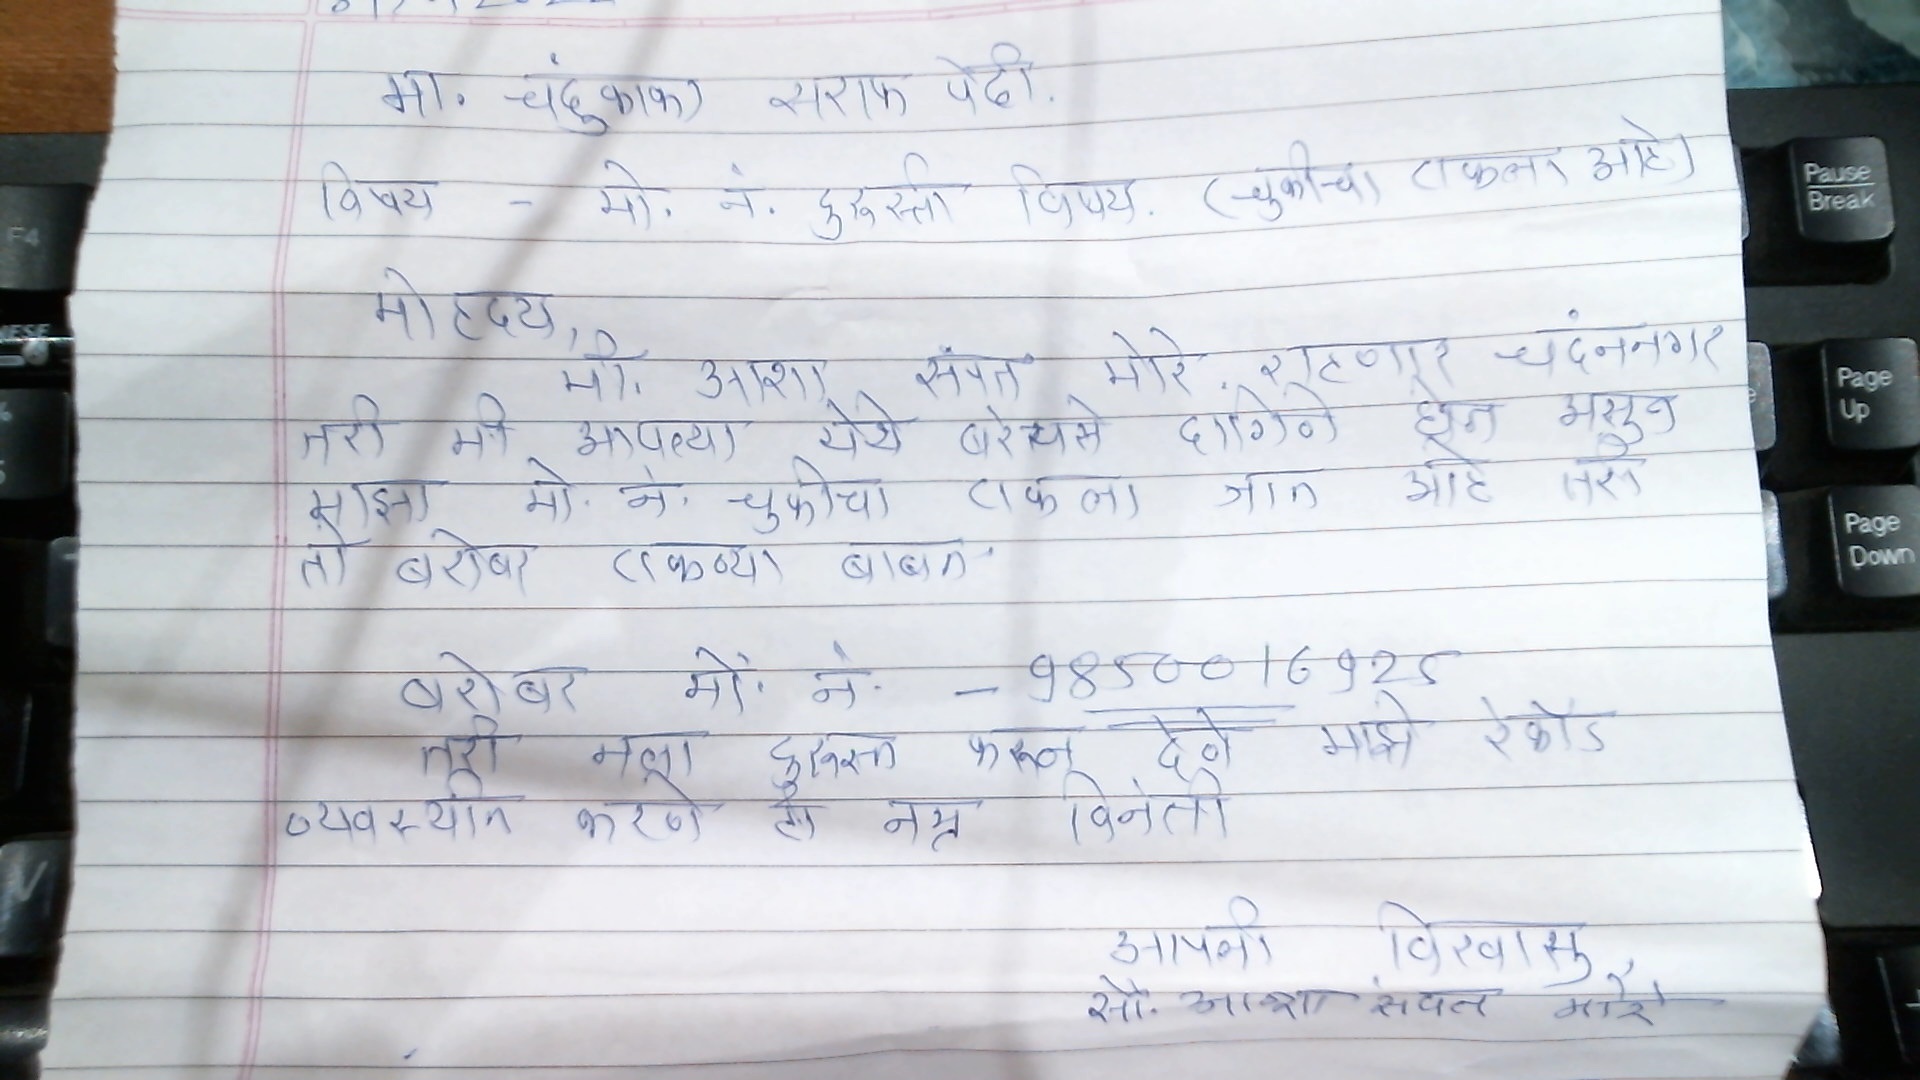 मा. चंदुकाका सराफ पेढी.
विषय - मो. नं. दुरुस्ती विषय. (चुकीचा टाकला आहे)
मोहदय,
मी. आशा संपत मोरे. राहणार चंदननगर
तरी मी आपल्या येथे बरेचसे दागिने घेत असुन
माझा मो. नं. चुकीचा टाकला जात आहे तरी
तो बरोबर टाकण्या बाबत.
बरोबर मों. नं. - 9850016925
तरी मला दुरुस्त करून देणे माझे रेकॉड
व्यवस्थीत करणे ही नम्र विनंती
आपली विश्वासु
सौ. आशा संपत मोरे